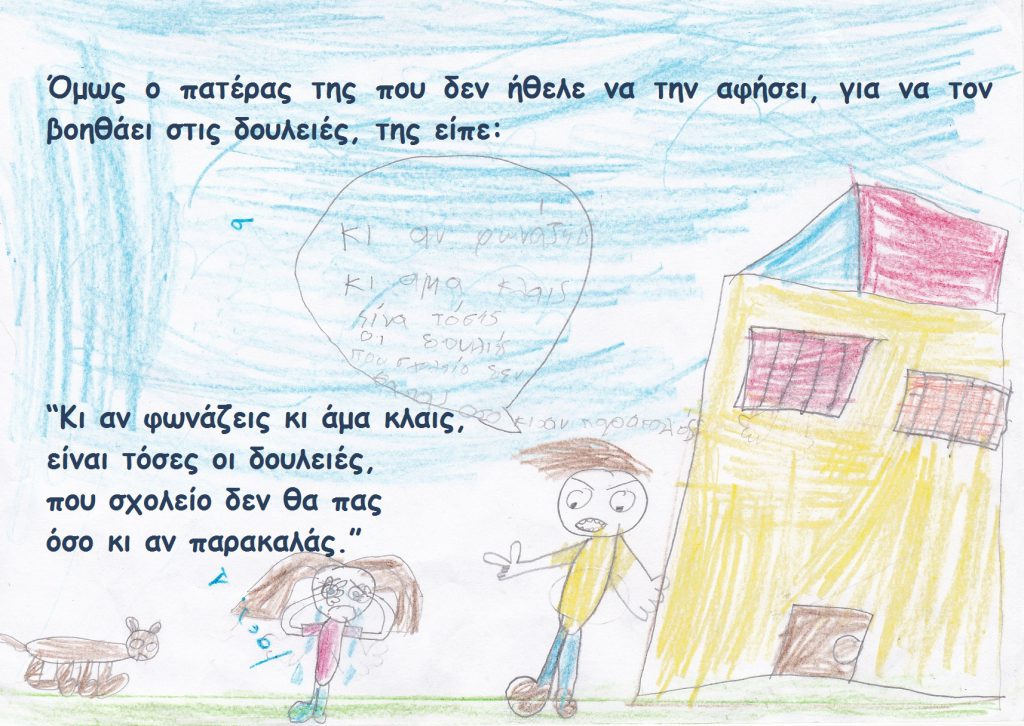 Όμως ο πατέρας της που δεν ήθελε να την αφήσει, για να τον
βοηθάει στις δουλειές, της είπε:
κι αν φωνάζις
κι αμα κλαις
ίνα τόσες
οι δουλιές
που σχολίο δεν
θα πας οσο κι αν παρακαλάς
“Κι αν φωνάζεις κι άμα κλαις,
είναι τόσες οι δουλειές,
που σχολείο δεν θα πας
όσο κι αν παρακαλάς.”